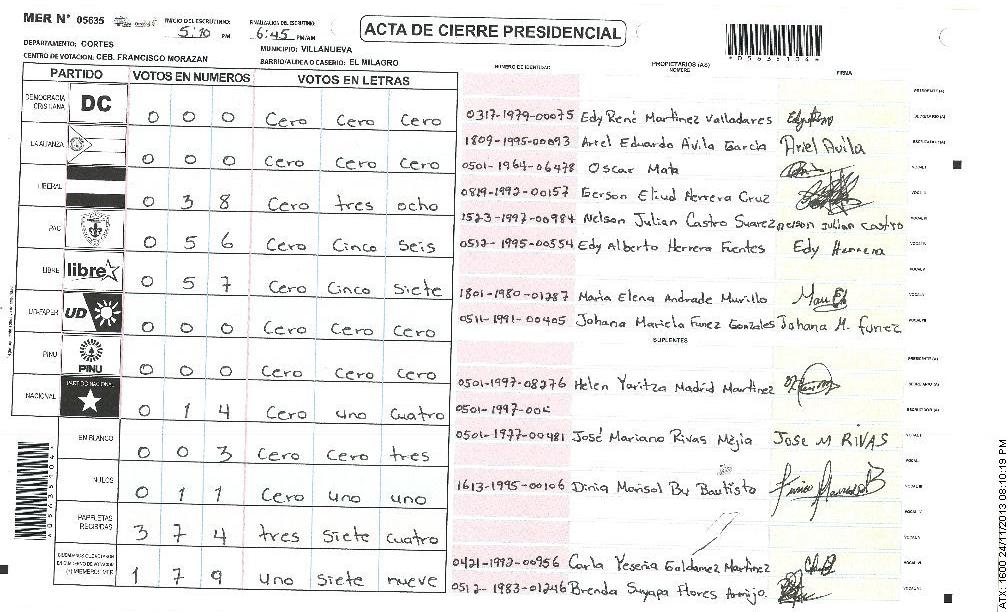 MER N° 05635
INICIO DEL ESCRUTINIO:
5:10 PM
FINALIZACION DEL ESCRUTINIO:
6:45 PM/AM
ACTA DE CIERRE PRESIDENCIAL
*05635104*
DEPARTAMENTO: CORTES
MUNICIPIO: VILLANUEVA
CENTRO DE VOTACION: CEB. FRANCISCO MORAZAN
BARRIO/ALDEA O CASERIO: EL MILAGRO
PARTIDO VOTOS EN NUMEROS VOTOS EN LETRAS
DEMOCRACIA CRISTIANA DC 0 0 0 Cero Cero Cero
LA ALIANZA 0 0 0 Cero Cero Cero
LIBERAL 0 3 8 Cero tres ocho
PAC 0 5 6 Cero Cinco Seis
LIBRE libre 0 5 7 Cero Cinco Siete
UD-FAPER UD 0 0 0 Cero Cero Cero
PINU PINU 0 0 0 Cero Cero Cero
NACIONAL PARTIDO NACIONAL 0 1 4 Cero uno Cuatro
EN BLANCO 0 0 3 Cero Cero tres
NULOS 0 1 1 Cero uno uno
PAPELETAS RECIBIDAS 3 7 4 tres Siete Cuatro
1 7 9 uno Siete nueve
NUMERO DE IDENTIDAD PROPIETARIOS (AS) NOMBRE FIRMA
PRESIDENTE (A)
0317-1979-00075 Edy René Martinez Valladares SECRETARIO (A)
1809-1995-00093 Ariel Eduardo Avila García Ariel Avila ESCRUTADOR (A)
0501-1964-06478 Oscar Mata VOCAL I
0819-1992-00157 Gerson Eliud Herrera Cruz VOCAL II
1523-1997-00984 Nelson Julian Castro Suarez nelson Julian Castro VOCAL III
0512-1995-00554 Edy Alberto Herrera Fuentes Edy Herrera VOCAL IV
VOCAL V
1801-1980-01287 Maria Elena Andrade Murillo VOCAL VI
0511-1991-00405 Johana Mariela Funez Gonzales Johana M. funez VOCAL VII
SUPLENTES
PRESIDENTE (A)
0501-1997-08276 Helen Yaritza Madrid Martinez SECRETARIO (A)
0501-1997-00 ESCRUTADOR (A)
0501-1977-00481 José Mariano Rivas Mejia JOSE M RIVAS VOCAL I
VOCAL II
1613-1995-00106 Dinia Marisol Bu Bautista VOCAL III
VOCAL IV
VOCAL V
0421-1992-00956 Carla Yesenia Galdamez Martinez VOCAL VI
0512-1983-01246 Brenda Suyapa Flores Araujo. VOCAL VII
*05635104*
ATX 1600 24/11/2013 08:10:19 PM